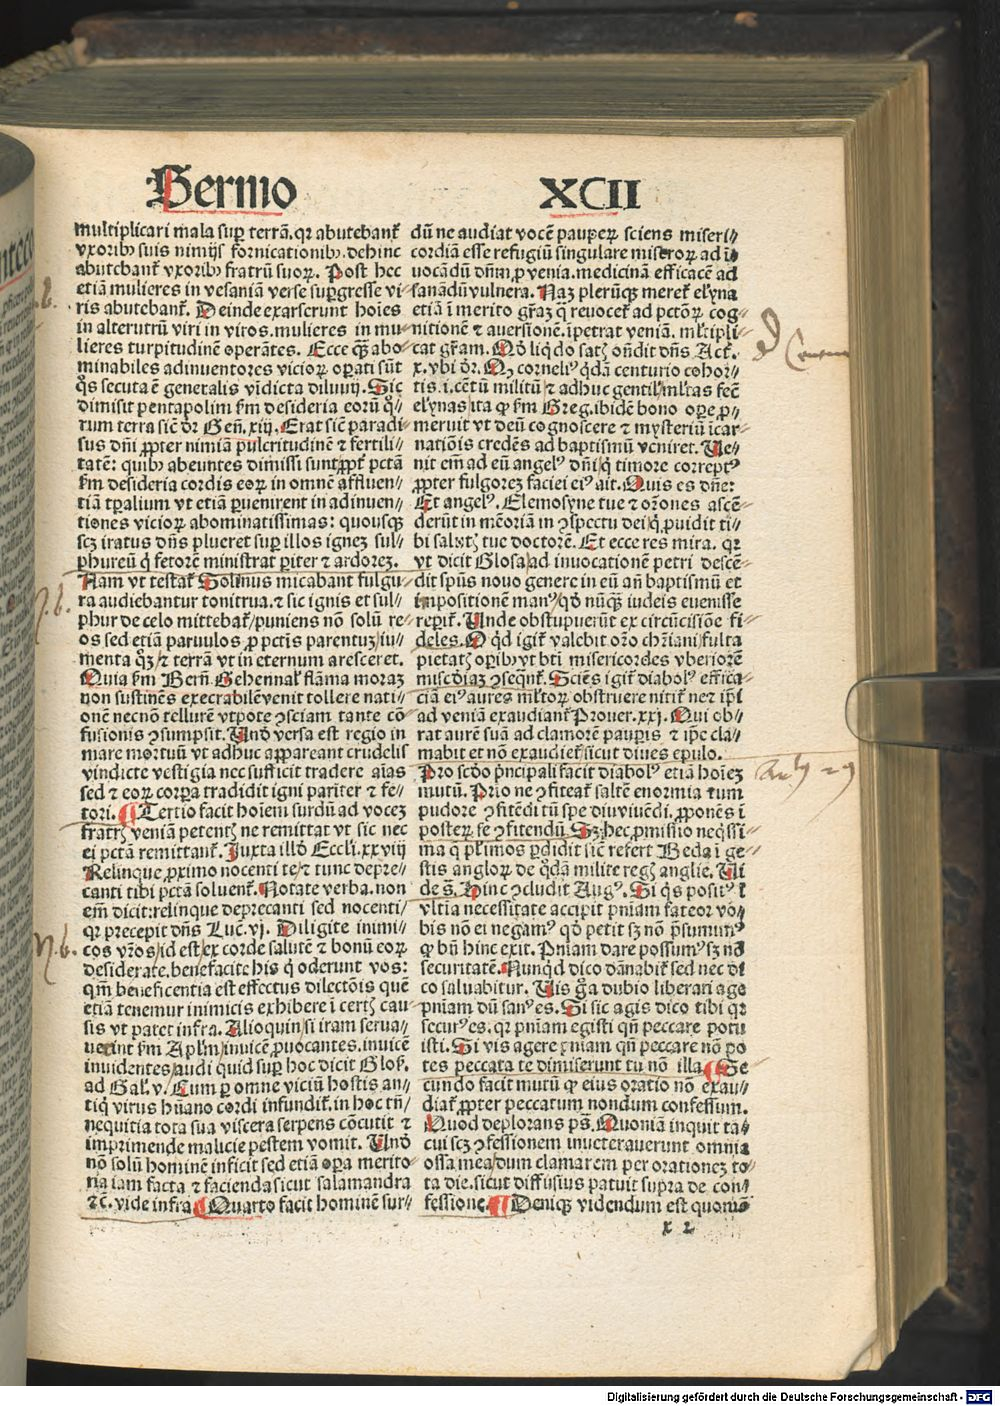 Sermo
XCII
multiplicari mala suꝑ terrā. qꝛ abutebant᷑
vxoribꝰ suis nimijs fornicationibꝰ. dehinc
abutebant᷑ vxoribꝰ fratrū suoꝝ. Post hec
etiā mulieres in vesaniā verse suꝑgresse vi⸗
ris abutebant᷑. Deinde exarserunt hoīes
in alterutrū viri in viros. mulieres in mu⸗
lieres turpitudinē operātes. Ecce qꝫ̄ abo⸗
minabiles adinuentores vicioꝝ oꝑati sūt
q̄s secuta ē generalis vīdicta diluuij. Sic
dimisit pentapolim ẜm desideria eorū q̊⸗
rum terra sic̄ dr̄ Gen̄. xiij. Erat sic̄ paradi⸗
sus dn̄i ꝓpter nimiā pulcritudinē ⁊ fertili⸗
tatē: quibꝰ abeuntes dimissi sunt ꝓpt᷑ pctā
ẜm desideria cordis eoꝝ in omnē affluen⸗
tiā tꝑalium vt etiā ꝑuenirent in adinuen⸗
tiones vicioꝝ abominatissimas: quousqꝫ
scꝫ iratus dn̄s plueret suꝑ illos ignez sul⸗
phureū q̇ fetorē ministrat ꝑiter ⁊ ardorez.
Nam vt testat᷑ Solinus micabant fulgu⸗
ra audiebantur tonitrua. ⁊ sic ignis et sul⸗
phur de celo mittebat᷑/ puniens nō solū re⸗
os sed etiā paruulos ꝓ pctīs parentuꝫ/ iu⸗
menta qꝫ ⁊ terrā vt in eternum aresceret.
Quia ẜm Bern̄. Gehennal᷑ flāma moraꝫ
non sustinēs execrabilē venit tollere nati⸗
onē necnō tellurē vtpote ↄsciam tante cō⸗
fusionis ↄsumpsit. Vnd̄ versa est regio in
mare mortuū vt adhuc appareant crudelis
vindicte vestigia nec sufficit tradere aīas
sed ⁊ eoꝝ corꝑa tradidit igni pariter ⁊ fe⸗
tori. ¶ Tertio facit hoīem surdū ad vocez
fratrꝭ veniā petentꝭ ne remittat vt sic nec
ei pctā remittant᷑. Juxta illd̄ Eccli. xxviij
Relinque ꝓximo nocenti te/ ⁊ tunc depre⸗
canti tibi pctā soluent᷑. Notate verba. non
em̄ dicit: relinque deprecanti sed nocenti⸗
qꝛ precepit dn̄s Luc̄. vj. Diligite inimi⸗
cos vr̄os/ id est/ ex corde salutē ⁊ bonū eoꝝ
desiderate. benefacite his q̇ oderunt vos:
qm̄ beneficentia est effectus dilectōis quē
etiā tenemur inimicis exhibere ī certꝭ cau⸗
sis vt patet infra. Alioquin/ si iram serua⸗
uerint ẜm Aplm̄/ inuicē ꝓuocantes. inuicē
inuidentes/ audi quid suꝑ hoc dicit Glos̄.
ad Gal̄. v. Cum ꝑ omne viciū hostis an⸗
tiqͥ virus hūano cordi infundit᷑. in hoc tn̄⸗
nequitia tota sua viscera serpens cōcutit ⁊
imprimende malicie pestem vomit. Vnd̄
nō solū hominē inficit sed etiā oꝑa merito⸗
ria iam facta ⁊ facienda sicut salamandra
⁊c̄. vide infra ¶ Quarto facit hominē sur⸗
dū ne audiat vocē pauꝑeꝝ sciens miseri⸗
cordiā esse refugiū singulare miseroꝝ ad ī⸗
uocādū dn̄m ꝓ venia. medicinā efficacē ad
sanādū vulnera. Naꝫ plerūqꝫ meret᷑ el̓yna
etiā ī merito gr̄aꝫ q̄ reuocet᷑ ad pctōꝝ cog⸗
nitionē ⁊ auersionē. īpetrat veniā. ml̓tipli⸗
cat gr̄am. Qd̄ liqͥdo satꝭ on̄dit dn̄s Act᷑.
x. vbi dr̄. Qꝫ corneliꝰ qͥdā centurio cohor⸗
tis. i. cētū militū ⁊ adhuc gentil̓ ml̓tas fec̄
el̓ynas ita ꝙ ẜm Greg. ibidē bono oꝑe ꝓ⸗
meruit vt deū cognoscere ⁊ mysteriū īcar⸗
natiōis credēs ad baptismū veniret. Ve⸗
nit em̄ ad eū angelꝰ dn̄i/ q̄ timore correptꝰ
ꝓpter fulgorez faciei eiꝰ ait. Quis es dn̄e?
Et angelꝰ. Elemosyne tue ⁊ orōnes ascē⸗
derūt in mēoriā in ↄspectu dei/ q̇ ꝓuidit ti⸗
bi salutꝭ tue doctorē. Et ecce res mira. qꝛ
vt dicit Glosa/ ad inuocationē petri descē⸗
dit spūs nouo genere in eū an̄ baptismū et
impositionē manꝰ/ qd̄ nūqꝫ̄ iudeis euenisse
reperit᷑. Vnde obstupuerūt ex circūcisiōe fi⸗
deles. O qͥd igit᷑ valebit orō chr̄iani fulta
pietatꝭ oꝑibꝰ vt bt̄i misericordes vberiorē
miscd̄iaꝫ ↄsequnt᷑. Sciēs igit᷑ diabolꝰ effica⸗
ciā eiꝰ aures ml̓toꝝ obstruere nitit᷑ ne ⁊ ip̄i
ad veniā exaudiant᷑ Prouer. xxj. Qui ob⸗
rat aurē suā ad clamorē pauꝑis ⁊ ip̄e cla⸗
mabit et nō exaudiet᷑/ sicut diues epulo.
Pro scd̄o pͥncipali facit diabolꝰ etiā hoīeꝫ
mutū. Prīo ne ↄfiteat᷑ saltē enormia tum
pudore ↄfitēdi tū spe diu viuēdi. ꝓponēs ī
posteꝝ se ↄfitendū. Sꝫ hec ꝓmissio neqͥssi⸗
ma qͣ plīmos ꝑdidit sic̄ refert Beda ī ge⸗
stis angloꝝ de qͦdā milite regꝭ anglie. Vi
de s̄. Hinc ↄcludit Augꝰ. Si qͥs positꝰ ī
vltīa necessitate accipit pn̄iam fateor vo⸗
bis nō ei negamꝰ qd̄ petit sꝫ nō p̄sumimꝰ
ꝙ bn̄ hinc exit. Pn̄iam dare possumꝰ sꝫ nō
securitatē. Nunqͥd dico dānabit᷑ sed nec di
co saluabitur. Vis g̊ a dubio liberari age
pn̄iam dū sanꝰ es. Si sic agis dico tibi qꝛ
securꝰ es. qꝛ pn̄iam egisti qn̄ peccare potu
isti. Si vis agere pn̄iam qn̄ peccare nō po
tes peccata te dimiserunt tu nō illa ¶ Se
cundo facit mutū ꝙ eius oratio nō exau⸗
diat᷑ ꝓpter peccatum nondum confessum.
Quod deplorans ps̄. Quoniā inquit ta⸗
cui scꝫ ↄfessionem inueterauerunt omnia
ossa mea/ dum clamarem per orationez to⸗
ta die. sicut diffusius patuit supra de con⸗
fessione. ¶ Deniqꝫ videndum est quoniā
x 2
N. b.
Digitalisierung gefördert durch die Deutsche Forschungsgemeinschaft - DFG